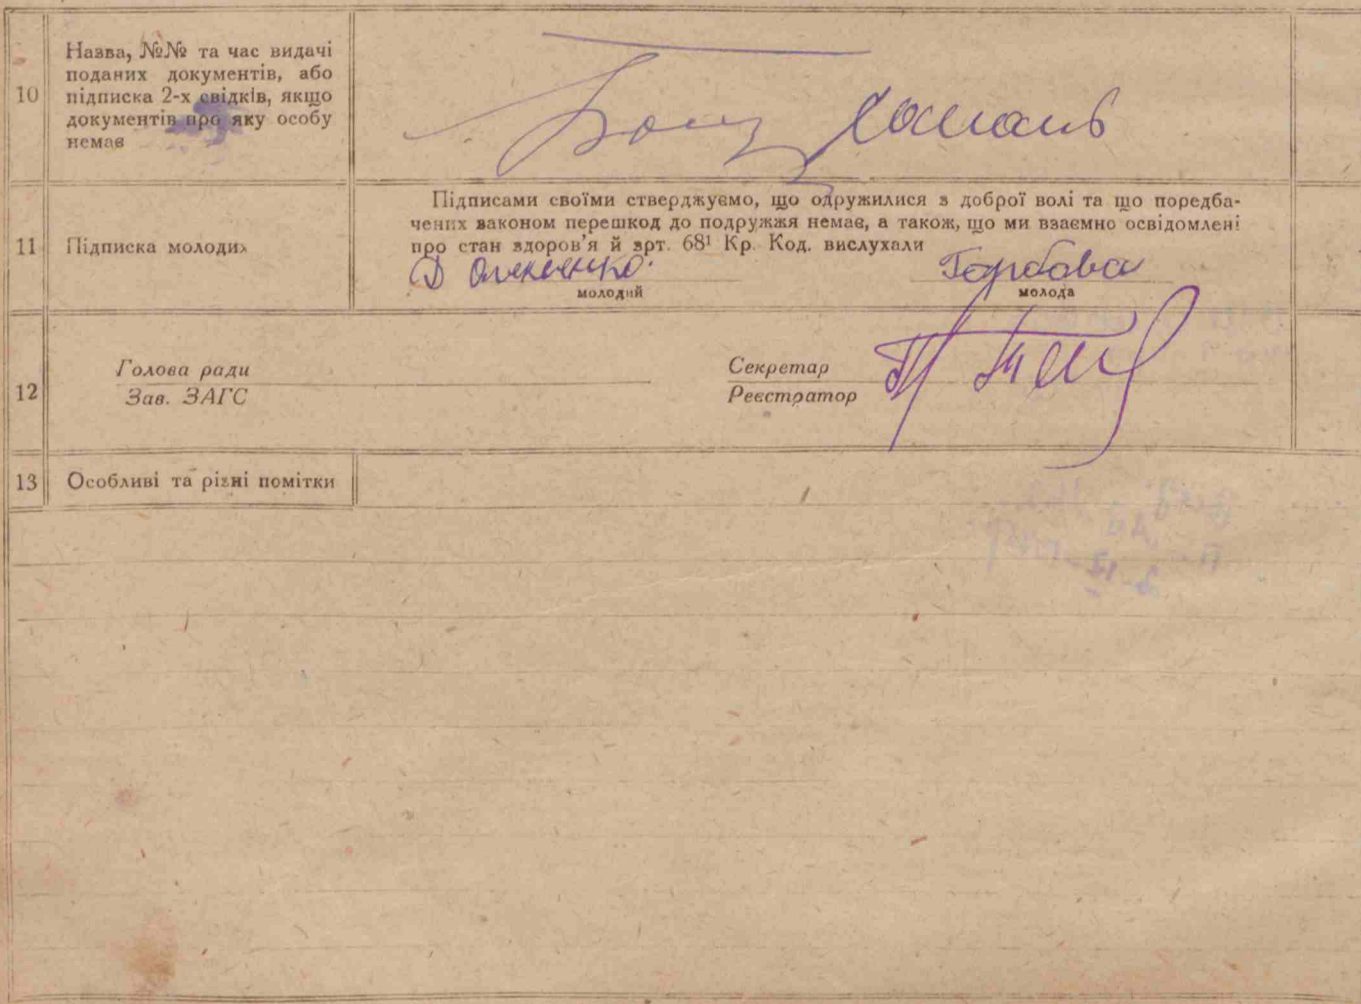 10
Назва, №№ та час видачі
поданих документів, або
підписка 2-х свідків, якщо
документів про яку особу
немає
11
Підписка молодих
Підписами своїми стверджуємо, що одружилися з доброї волі та що поредба-
чених законом перешкод до подружжя немає, а також, що ми взаємно освідомлені
про стан здоров'я й арт. 68¹ Кр. Код. вислухали
Д Олексєнко.
Горбова
молодий
молода
12
Голова ради
Зав. ЗАГС
Секретар
Реєстратор
13
Особливі та різні помітки